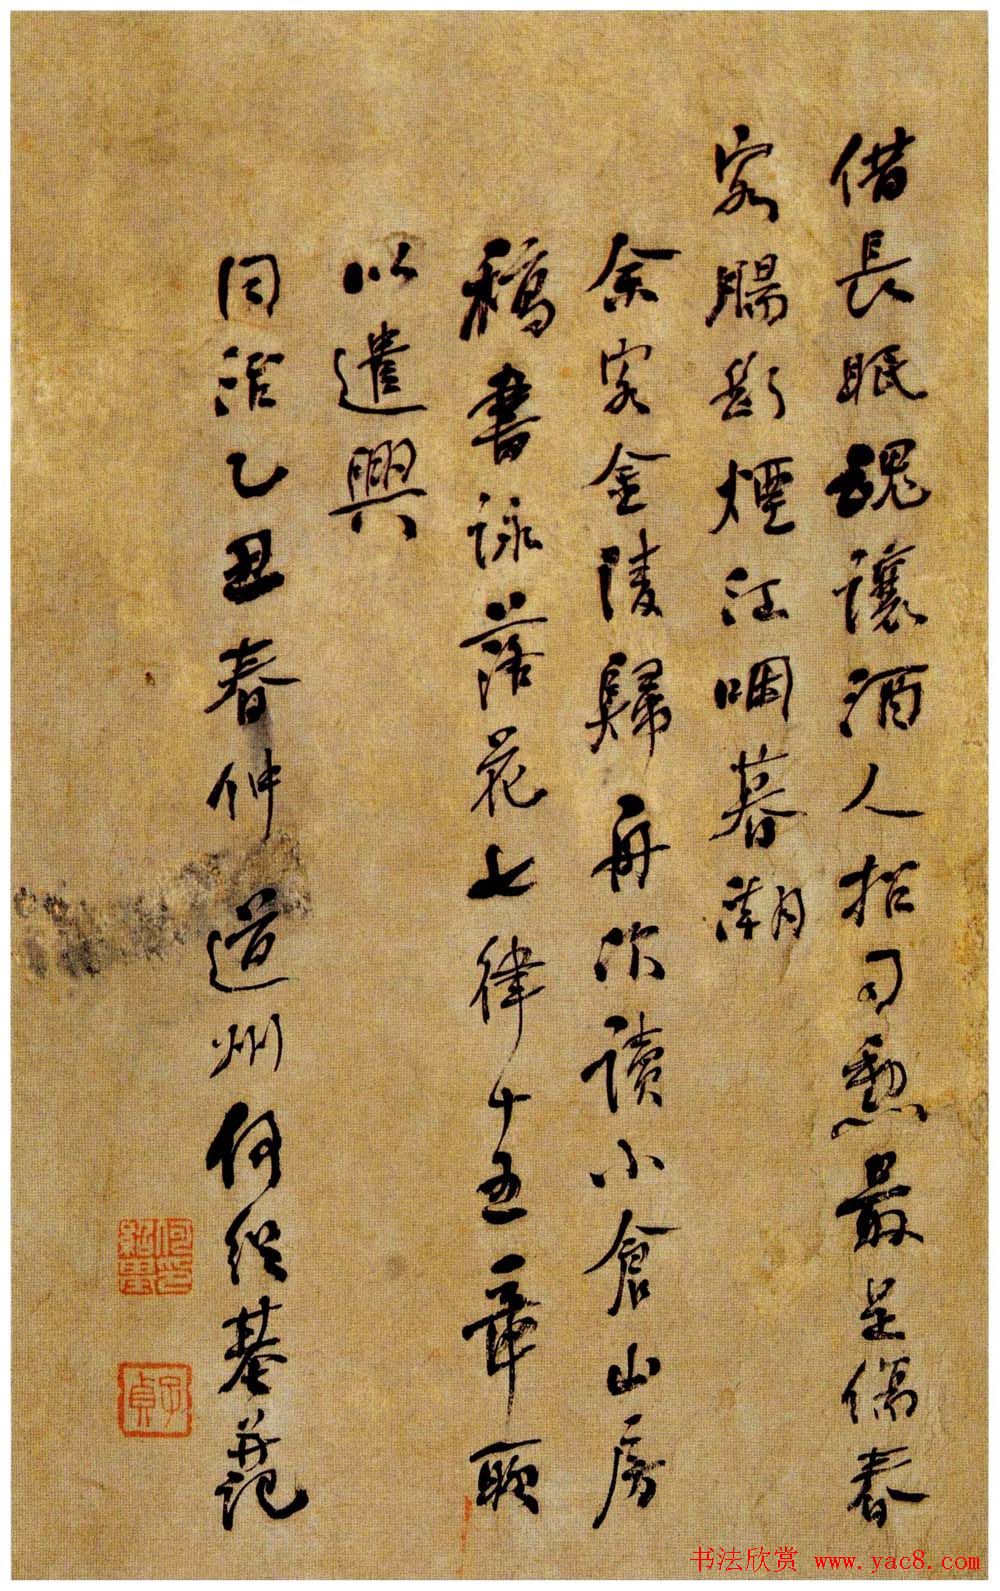 借長眠魂讓酒人招司勳最是傷春
客腸斷煙江咽暮潮
余客金陵歸舟次讀小倉山房
稿書詠落花七律十五章聊
以遣興
同治乙丑春仲 道州何紹基并記
子貞
书法欣赏 www.yac8.com